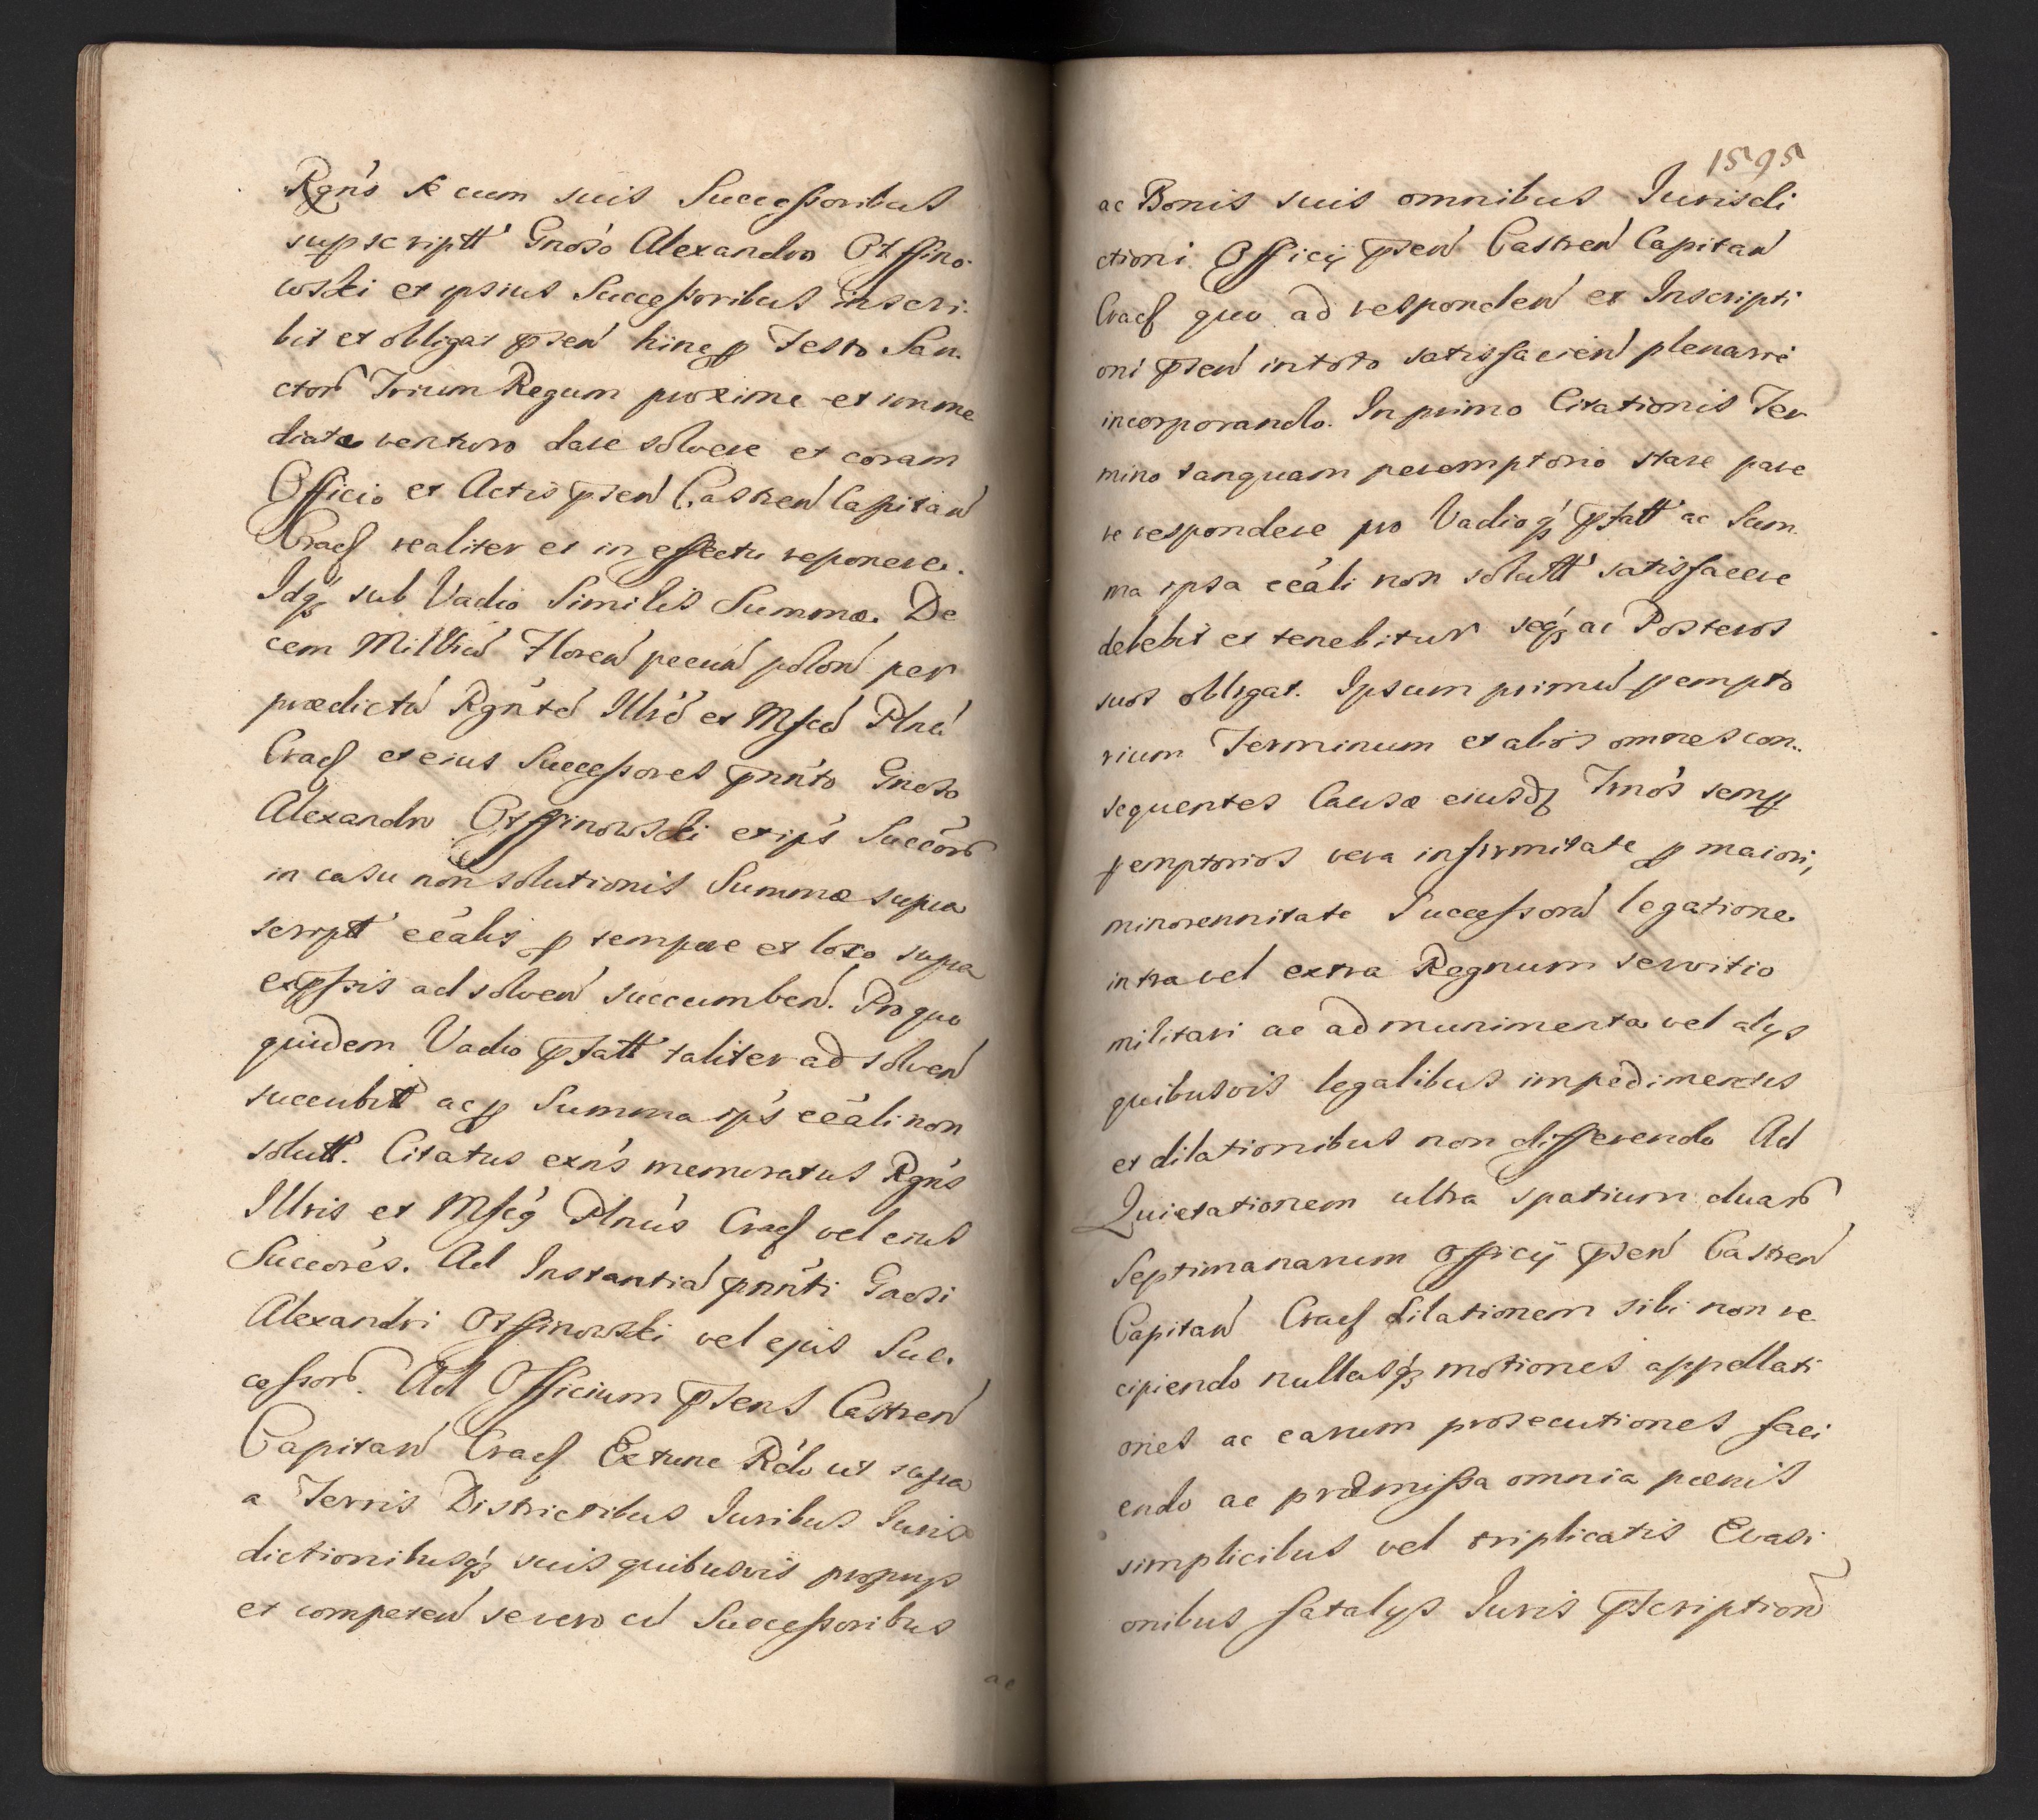 Rgn's se cum suis Successoribus
supscriptt' Gnoso Alexandro Otffino-
wski et ipsius Successoribus inscri-
bit et obligat pñsen hinc p Festo San-
ctor Trium Regum proxime et imme
diate venturo dare solvere et coram
Officio et Actis pñsen Castren Capitan
Cracͥ realiter et in effectu reponere.
Idq sub Vadio Similis Summæ De
cem Milliu Floren pecun polon per
prædictu Rgñte Illre et Mfcu Plnu
Crac et eius Successores pnñto Gnoso
Alexandro Otffinowski et ip's Succor
in casu non solutionis Summæ supra
scriptt eealis p tempore et loco supra
exp̃ssis ad solven succumben. Pro quo
quidem Vadio pstatt' taliter ad solven
succubitt ac p Summa ip's eeali non
solutt. Citatus exn's memoratus Rgn's
Illris et Mfcq Plnu's Crac vel eius
Succores. Ad Instantia pnnti Gnosi
Alexandri Otffinowski vel ejus Suc-
cessor. Ad Officium pñsens Castren
Capitan Crac Extunc Rdo ut supra
a Terris Districtibus Iuribus Iuris
dictionibusq suis quibusvis proprys
et competen se vero cu Successoribus
ac
1595
ac Bonis suis omnibus Iurisdi
ctioni Officij pñsen Castren Capitan
Crac quo ad responden et Inscripti
oni pñsen in toto satisfacien plenarie
incorporando. In primo Citationis Ter
mino tanquam peremptorio stare pare
re respondere pro Vadioq pstatt' ac Sum-
ma ipsa eeali non solutt' satisfacere
debebit et tenebitur seq ac Posteros
suos obligat. Ipsum primu pempto
rium Terminum et alios omnes con-
sequentes Causæ eiusdq Trno's semp
pemptorios vera infirmitate p maiori,
minorennitate Successoru legatione
intra vel extra Regnum servitio
militari ac ad munimenta vel alys
quibusvis legalibus impedimentis
et dilationibus non differendo Ad
Quietationem ultra spatium duar
Septimanarum Officij pñsen Castren
Capitan Crac dilationem sibi non re-
cipiendo nullasq motiones appellati
ones ac earum prosecutiones faci
endo ac præmissa omnia pœnis
simplicibus vel triplicatis Evasi
onibus fatalys Iuris pscription